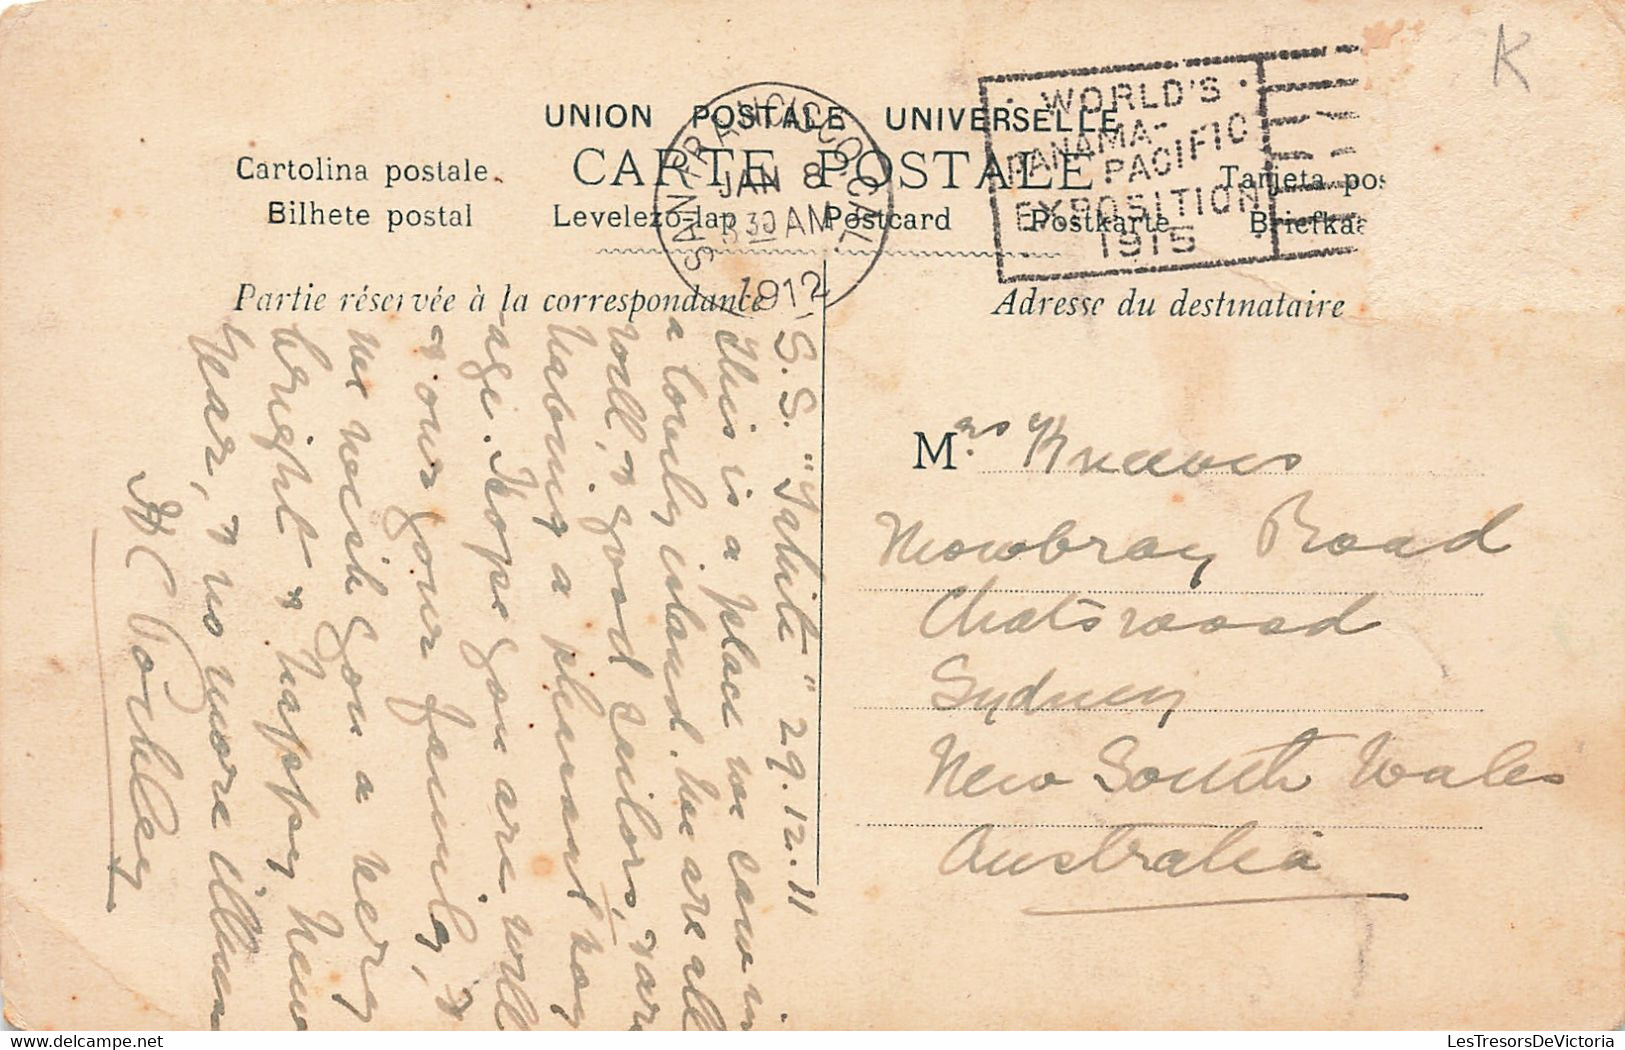 K
UNION POSTALE UNIVERSELLE
CARTE POSTALE
Cartolina postale
Tarjeta pos
Bilhete postal
Levelezo-lap
Postcard
Postkarte
Briefka
SAN FRANCISCO CAL
JAN 8
3 30 AM
1912
WORLD'S
PANAMA-
PACIFIC
EXPOSITION
1915
Partie réservée à la correspondance
Adresse du destinataire
S.S. "Tahiti" 29.12.11
This is a place we came in
a lovely island. We are all
well, & good sailors, &
having a pleasant voy
age. Hope you are well
& your family, &
we wish you a very
bright & happy New
Year, & no more illness
C Pockley
Mrs
Mowbray Road
Chatswood
Sydney
New South Wales
Australia
LesTresorsDeVictoria